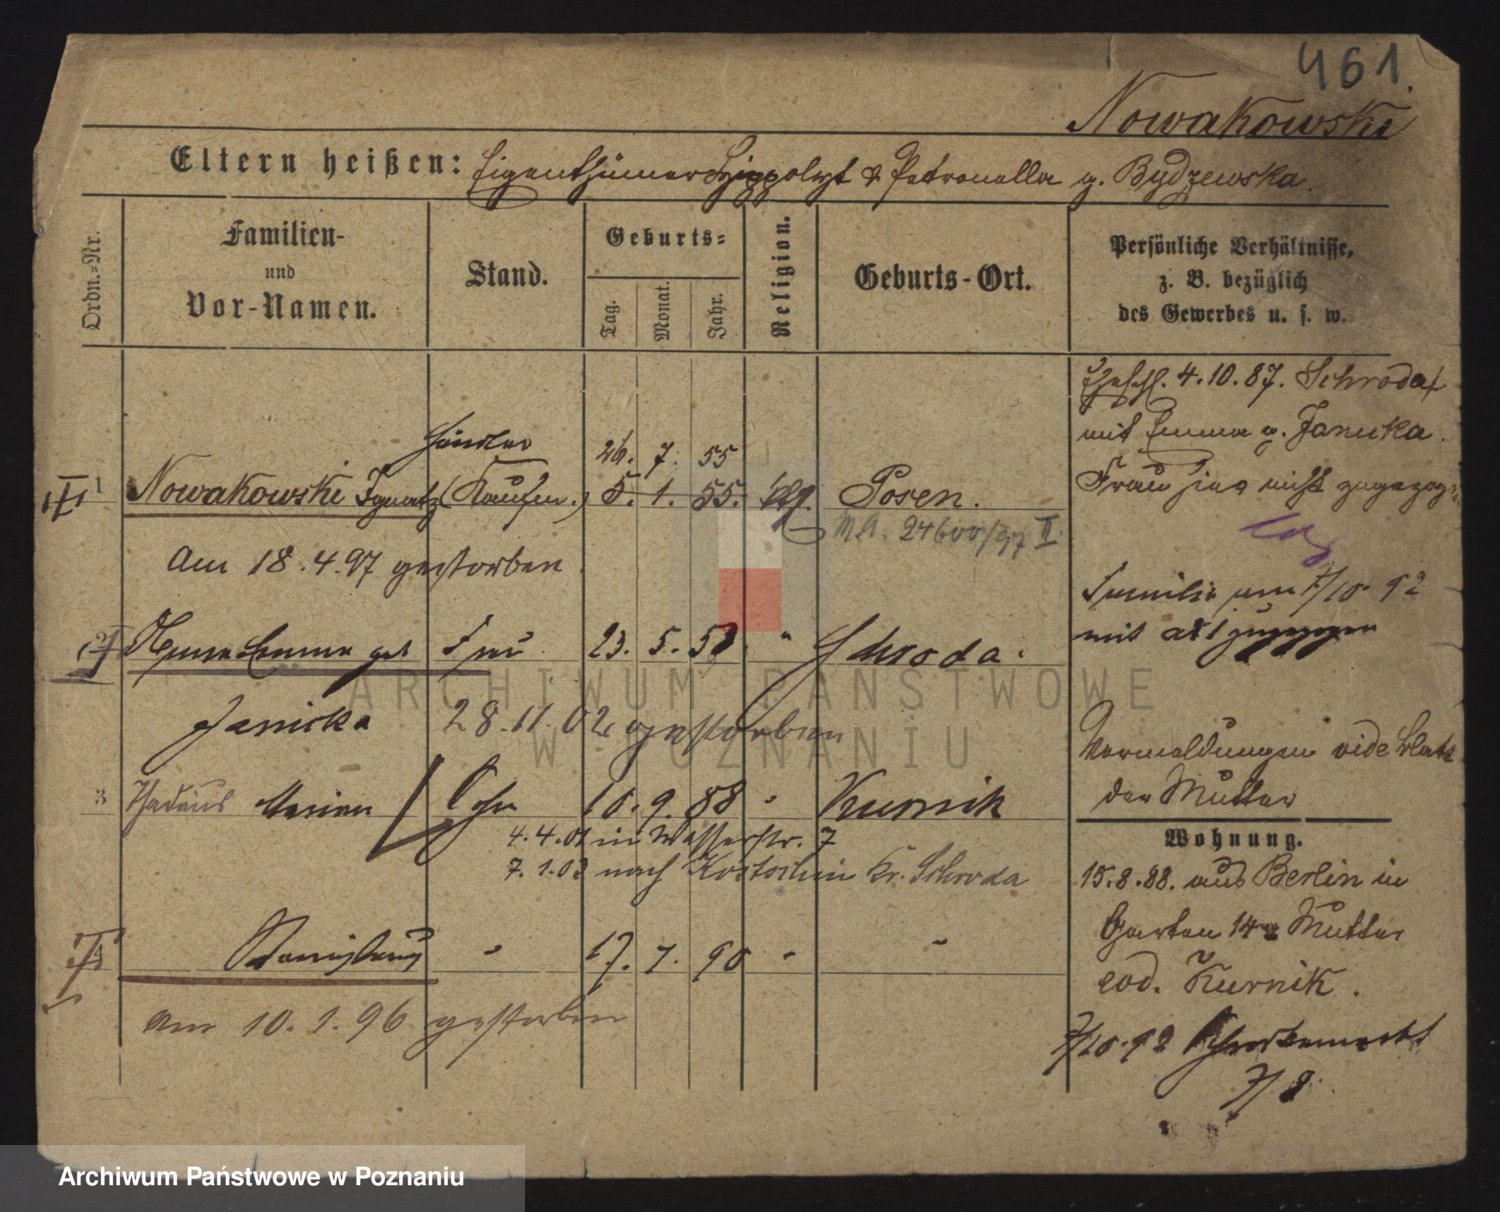 461.
Nowakowski
Eltern heißen: Eigenthümer Hyppolyt & Petronella g. Bydzewska.
Ordn.-Nr.
Familien-
und
Vor-Namen.
Stand.
Geburts-
Tag.
Monat.
Jahr.
Religion.
Geburts-Ort.
Persönliche Verhältnisse,
z. B. bezüglich
des Gewerbes u. s. w.
Ehesch. 4.10.87. Schroda
mit Emma g. Janicka.
Frau hier nicht
Händler 26. 7. 55
1 Nowakowski Ignatz (Kaufm.) 5. 1. 55. Posen.
M.A. 24600/97 II
Am 18.4.97 gestorben
Familie am 7/10.92
mit
2 Emma geb Frau 23. 5. 58 " Schroda.
Janicka 28.11.02 gestorben
Vermeldungen vide Blatt
der Mutter
3 Thadeus Marian Sohn 10. 9. 88 " Kurnik
4.4.01 in Wasserstr. 7
7.1.03 nach Kostschin Kr. Schroda
Wohnung.
15.8.88. aus Berlin in
Garten 14 Mutter
eod. Kurnik.
4 Stanislaus " 17. 7. 90 " "
Am 10.1.96 gestorben
7/10.92
7/8.
ARCHIWUM PAŃSTWOWE
W POZNANIU
Archiwum Państwowe w Poznaniu